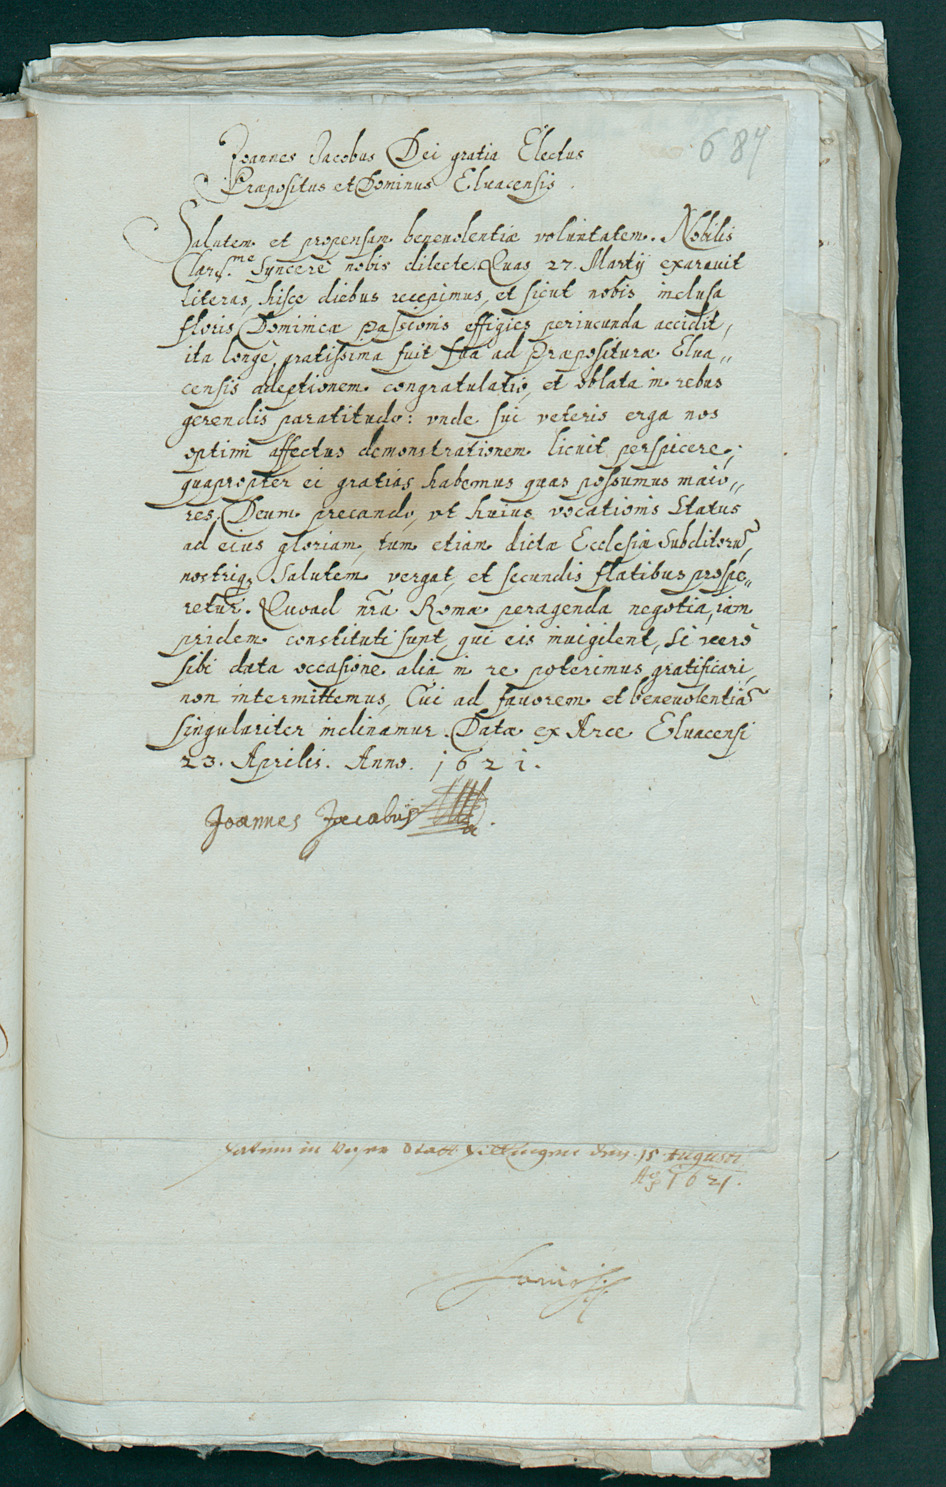 687
Joannes Jacobus Dei gratia Electus
Præpositus et Dominus Eluacensis.
Salutem et propensam beneuolentiæ voluntatem. Nobilis
Clariss.me Syncerè nobis dilecte. Quas 27. Martij exarauit
literas, hisce diebus recepimus, et sicut nobis inclusa
floris Dominicæ passionis effigies periucunda accidit,
ita longè gratissima fuit sua ad Præpositura Elua„
censis adeptionem congratulatio, et oblata in rebus
gerendis paratitudo: vnde sui veteris erga nos
optimi affectus demonstrationem licuit perspicere;
quapropter ei gratias habemus quas possumus maio„
res, Deum precando, vt huius vocationis Status
ad eius gloriam, tum etiam dictæ Ecclesiæ Subditorū,
nostriq; Salutem vergat, et secundis flatibus prospe„
retur. Quoad nr̃a Romæ peragenda negotia, iam
pridem constituti sunt, qui eis inuigilent, Si verò
sibi data occasione alia in re poterimus gratificari,
non intermittemus, Cui ad fauorem et beneuolentiā
singulariter inclinamur. Datæ ex Arce Eluacensi
23. Aprilis. Anno. 1621.
Joannes Jacobus
Datum in Statt Dillingen den 15 Augusti
Ao 1621.